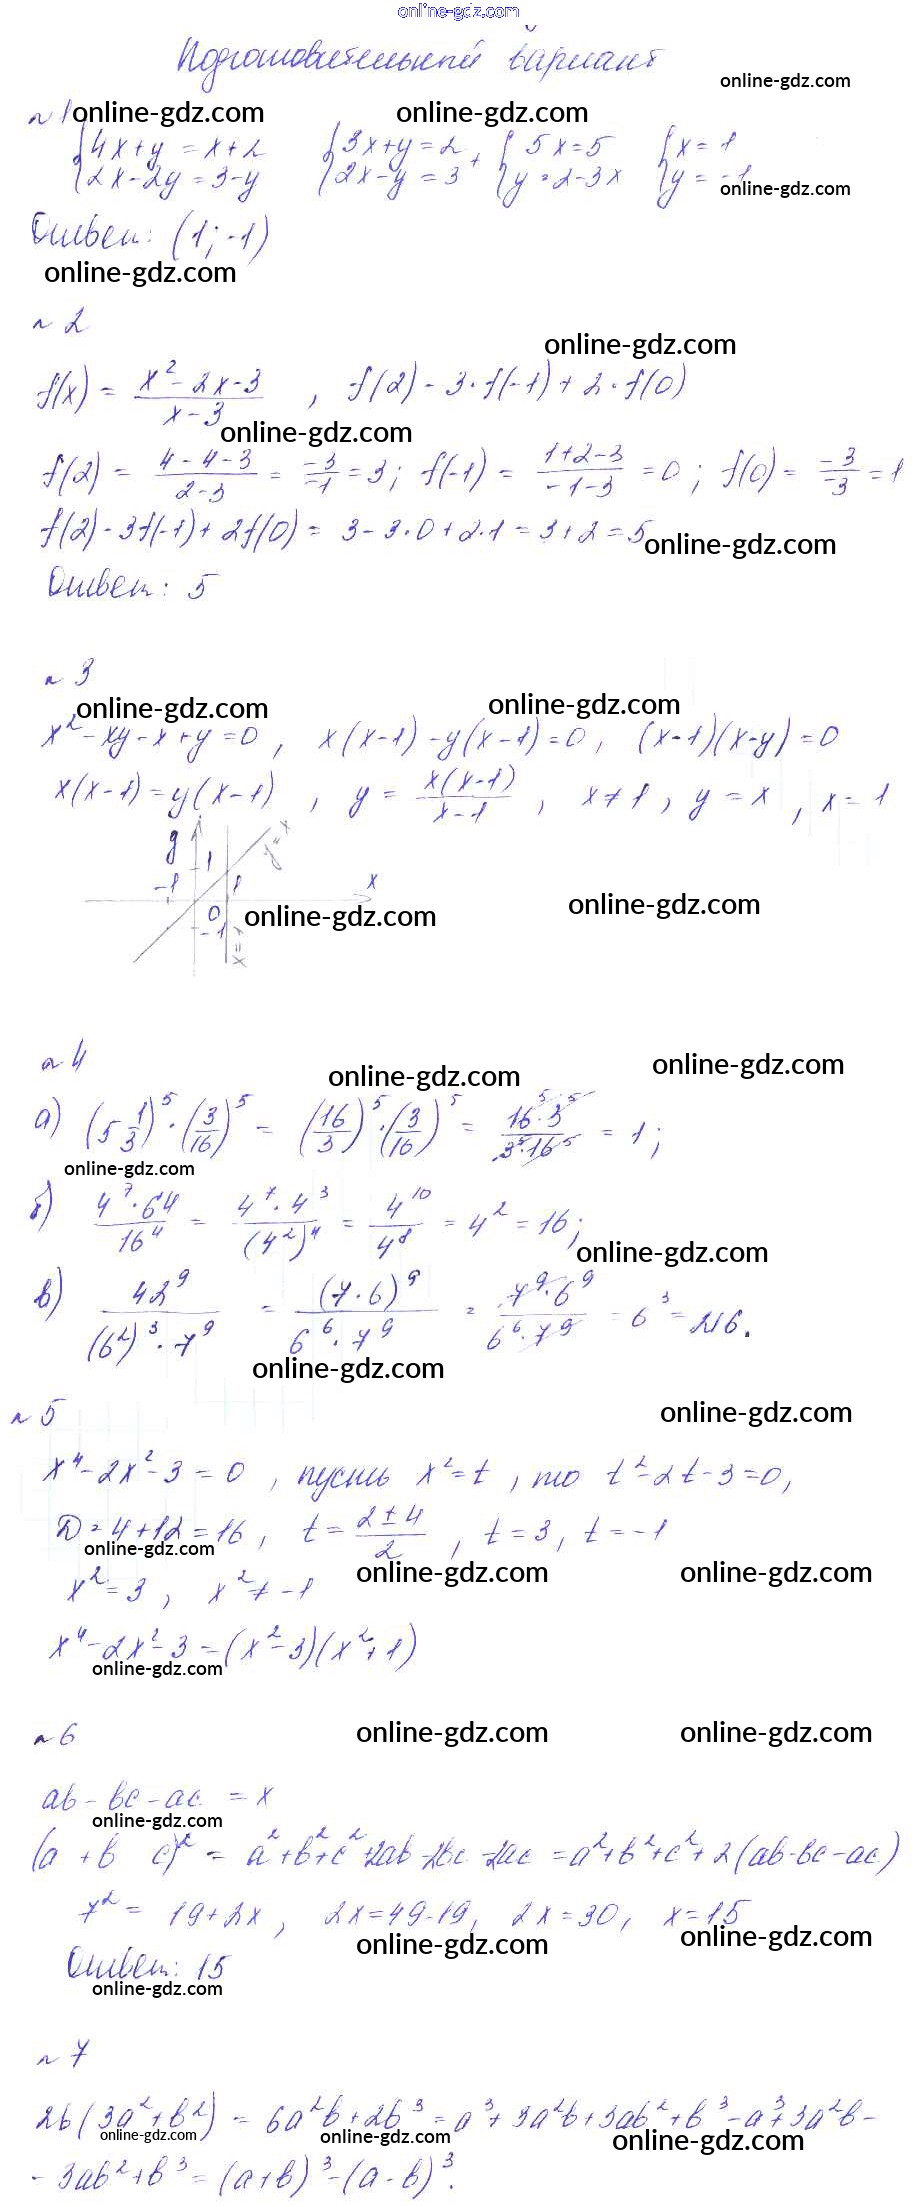 online-gdz.com
Подготовительный вариант
online-gdz.com
№1 online-gdz.com online-gdz.com
{4x+y = x+2 {3x+y=2 + {5x=5 {x=1
{2x-2y=3-y {2x-y=3 {y=2-3x {y=-1
online-gdz.com
Ответ: (1;-1)
online-gdz.com
№2
online-gdz.com
f(x) = (x²-2x-3)/(x-3) , f(2) - 3·f(-1) + 2·f(0)
online-gdz.com
f(2) = (4-4-3)/(2-3) = -3/-1 = 3; f(-1) = (1+2-3)/(-1-3) = 0; f(0) = -3/-3 = 1
f(2)-3f(-1)+2f(0) = 3-3·0+2·1 = 3+2 = 5
online-gdz.com
Ответ: 5
№3
online-gdz.com online-gdz.com
x²-xy-x+y=0, x(x-1)-y(x-1)=0, (x-1)(x-y)=0
x(x-1)=y(x-1) , y = x(x-1)/(x-1) , x≠1, y=x, x=1
y 1 y=x
-1 1 x
0 online-gdz.com online-gdz.com
-1 x=1
№4
online-gdz.com online-gdz.com
а) (5 1/3)⁵·(3/16)⁵ = (16/3)⁵·(3/16)⁵ = (16⁵·3⁵)/(3⁵·16⁵) = 1;
online-gdz.com
б) (4⁷·64)/16⁴ = (4⁷·4³)/(4²)⁴ = 4¹⁰/4⁸ = 4² = 16;
online-gdz.com
в) 42⁹/((6²)³·7⁹) = (7·6)⁹/(6⁶·7⁹) = (7⁹·6⁹)/(6⁶·7⁹) = 6³ = 216.
online-gdz.com
№5
online-gdz.com
x⁴-2x²-3=0, пусть x²=t, то t²-2t-3=0,
D=4+12=16, t=(2±4)/2, t=3, t=-1
online-gdz.com online-gdz.com online-gdz.com
x²=3, x²≠-1
x⁴-2x²-3=(x²-3)(x²+1)
online-gdz.com
№6 online-gdz.com online-gdz.com
ab-bc-ac = x
online-gdz.com
(a+b c)² = a²+b²+c²+2ab-2bc-2ac = a²+b²+c²+2(ab-bc-ac)
7² = 19+2x, 2x=49-19, 2x=30, x=15
online-gdz.com online-gdz.com
Ответ: 15
online-gdz.com
№7
2b(3a²+b²) = 6a²b+2b³ = a³+3a²b+3ab²+b³-a³+3a²b-
online-gdz.com online-gdz.com online-gdz.com
-3ab²+b³=(a+b)³-(a-b)³.